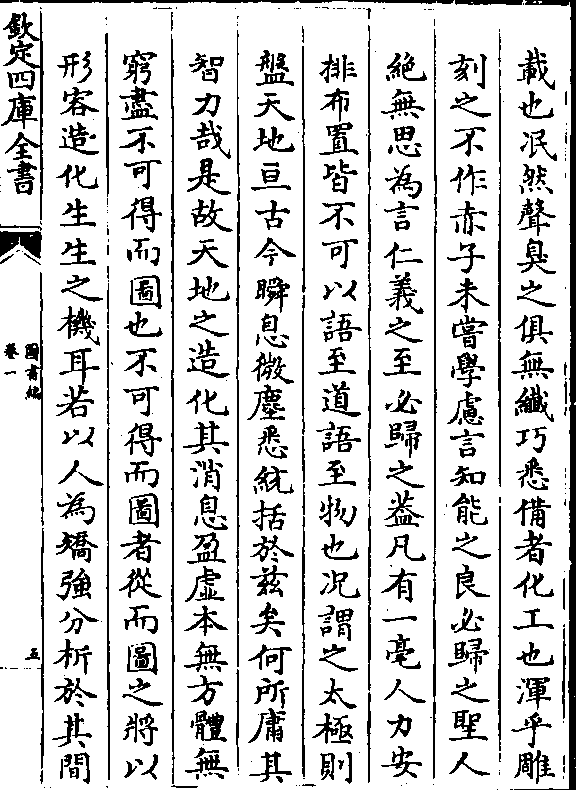 載也泯然聲臭之俱無纖巧悉備者化工也渾乎雕
刻之不作赤子未嘗學慮言知能之良必歸之聖人
絶無思為言仁義之至必歸之葢凡有一毫人力安
排布置皆不可以語至道語至物也况謂之太極則
盤天地亘古今瞬息微塵悉統括於兹矣何所庸其
智力哉是故天地之造化其消息盈虚本無方體無
窮盡不可得而圖也不可得而圖者從而圖之將以
形容造化生生之機耳若以人為矯強分析於其間
欽定四庫全書
圖書編
卷一
五